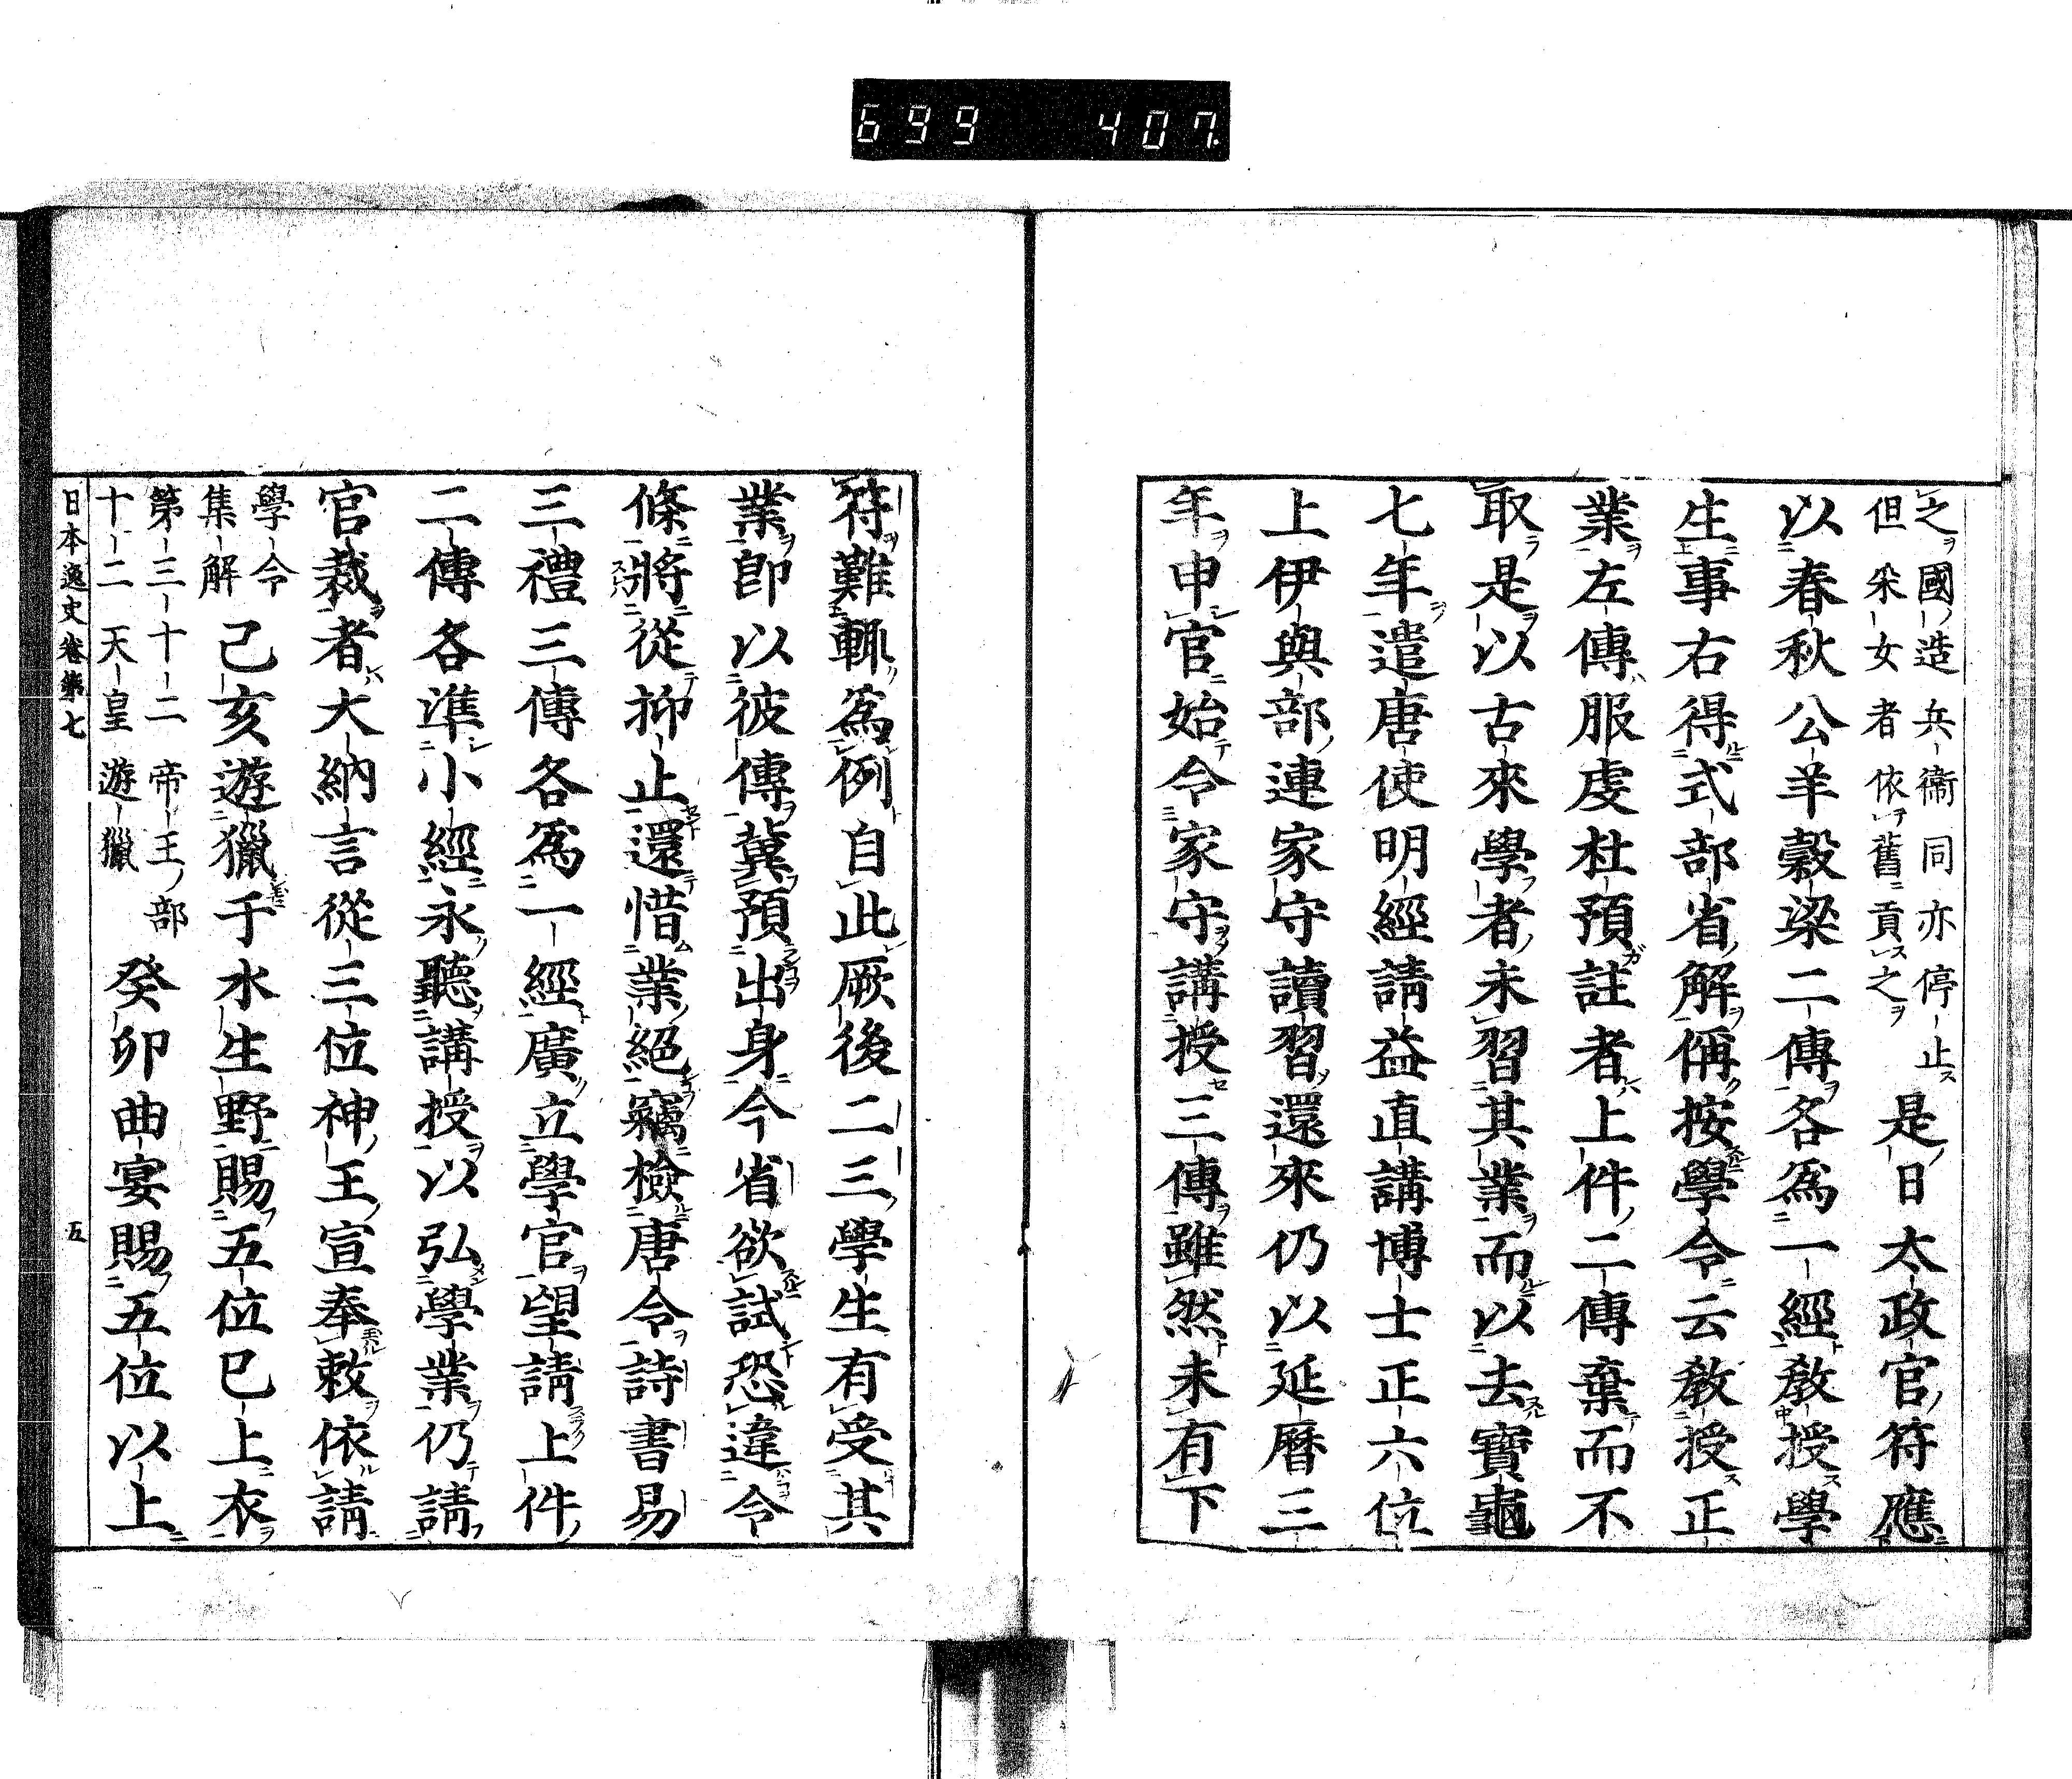 699 407
之國造兵衞同亦停止
但采女者依舊貢之
是日太政官符應
以春秋公羊穀梁二傳各爲一經敎授學
生事右得式部省解偁按學令云敎授正
業左傳服虔杜預註者上件二傳棄而不
取是以古來學者未習其業而以去寶龜
七年遣唐使明經請益直講博士正六位
上伊與部連家守讀習還來仍以延曆三
年申官始令家守講授三傳雖然未有下
符難輒爲例自此厥後二三學生有受其
業卽以彼傳冀預出身今省欲試恐違令
條將從抑止還惜業絕竊檢唐令詩書易
三禮三傳各爲一經廣立學官望請上件
二傳各準小經永聽講授以弘學業仍請
官裁者大納言從三位神王宣奉敕依請
學令
集解
己亥遊獵于水生野賜五位已上衣
第三十二帝王部
十二天皇遊獵
癸卯曲宴賜五位以上
日本逸史卷第七 五